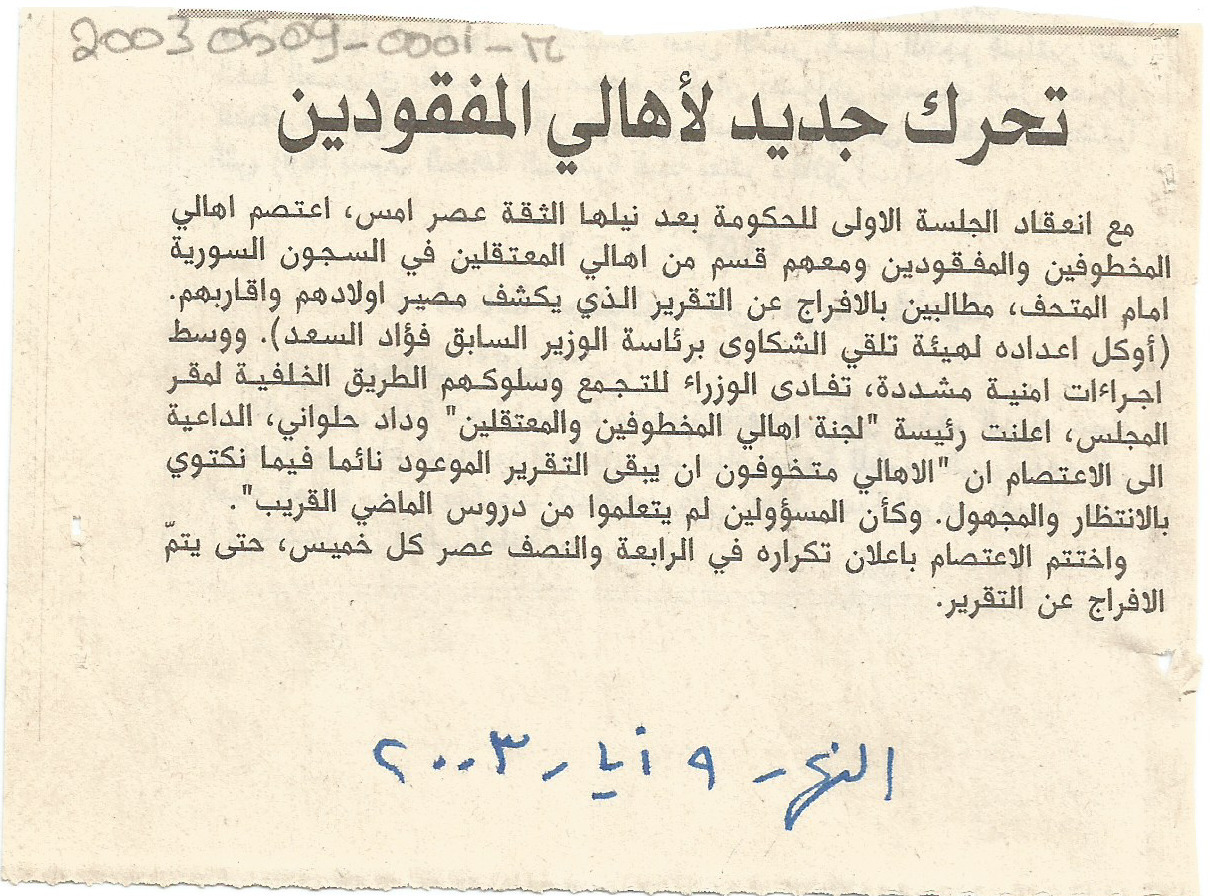 20030509-0001-M
تحرك جديد لأهالي المفقودين
مع انعقاد الجلسة الاولى للحكومة بعد نيلها الثقة عصر امس، اعتصم اهالي
المخطوفين والمفقودين ومعهم قسم من اهالي المعتقلين في السجون السورية
امام المتحف، مطالبين بالافراج عن التقرير الذي يكشف مصير اولادهم واقاربهم.
(أوكل اعداده لهيئة تلقي الشكاوى برئاسة الوزير السابق فؤاد السعد). ووسط
اجراءات امنية مشددة، تفادى الوزراء للتجمع وسلوكهم الطريق الخلفية لمقر
المجلس، اعلنت رئيسة "لجنة اهالي المخطوفين والمعتقلين" وداد حلواني، الداعية
الى الاعتصام ان "الاهالي متخوفون ان يبقى التقرير الموعود نائما فيما نكتوي
بالانتظار والمجهول. وكأن المسؤولين لم يتعلموا من دروس الماضي القريب".
واختتم الاعتصام باعلان تكراره في الرابعة والنصف عصر كل خميس، حتى يتمّ
الافراج عن التقرير.
النهار - ٩ أيار ٢٠٠٣